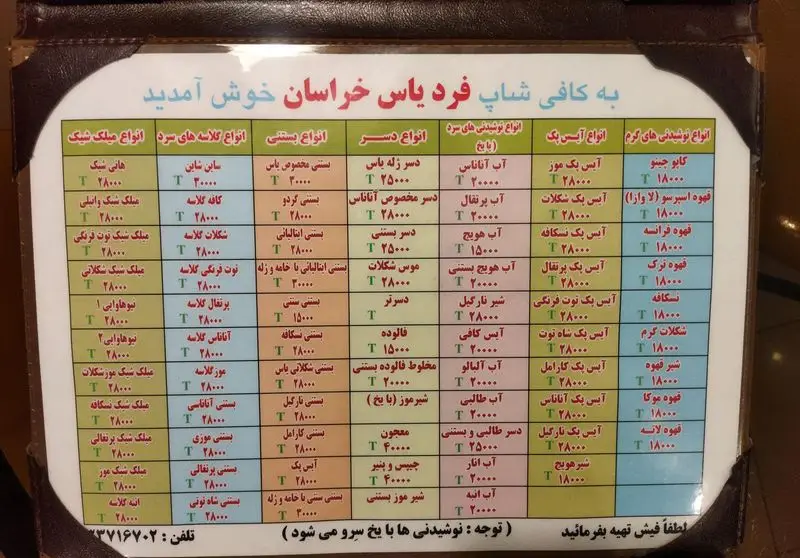 به کافی شاپ فرد یاس خراسان خوش آمدید
انواع نوشیدنی های گرم
کاپو چینو
۱۸۰۰۰ T
قهوه اسپرسو (لاوازا)
۱۸۰۰۰ T
قهوه فرانسه
۱۸۰۰۰ T
قهوه ترک
۱۸۰۰۰ T
نسکافه
۱۸۰۰۰ T
شکلات گرم
۱۸۰۰۰ T
شیر قهوه
۱۸۰۰۰ T
قهوه موکا
۱۸۰۰۰ T
قهوه لاته
۱۸۰۰۰ T
انواع آیس پک
آیس پک موز
۲۸۰۰۰ T
آیس پک شکلات
۲۸۰۰۰ T
آیس پک نسکافه
۲۸۰۰۰ T
آیس پک پرتقال
۲۸۰۰۰ T
آیس پک توت فرنگی
۲۸۰۰۰ T
آیس پک شاه توت
۲۸۰۰۰ T
آیس پک کارامل
۲۸۰۰۰ T
آیس پک آناناس
۲۸۰۰۰ T
آیس پک نارگیل
۲۸۰۰۰ T
شیرهویج
۱۸۰۰۰ T
انواع نوشیدنی های سرد
(با یخ)
آب آناناس
۲۰۰۰۰ T
آب پرتقال
۲۰۰۰۰ T
آب هویج
۱۵۰۰۰ T
آب هویج بستنی
۲۰۰۰۰ T
شیر نارگیل
۲۸۰۰۰ T
آیس کافی
۲۰۰۰۰ T
آب آلبالو
۲۰۰۰۰ T
آب طالبی
۲۰۰۰۰ T
دسر طالبی و بستنی
۲۵۰۰۰ T
آب انار
۲۸۰۰۰ T
آب انبه
۲۰۰۰۰ T
انواع دسر
دسر ژله یاس
۲۵۰۰۰ T
دسر مخصوص آناناس
۲۸۰۰۰ T
دسر بستنی
۲۵۰۰۰ T
موس شکلات
۲۸۰۰۰ T
دسرتر
T
فالوده
۱۵۰۰۰ T
مخلوط فالوده بستنی
۲۰۰۰۰ T
شیرموز (با یخ)
معجون
۴۰۰۰۰ T
چیپس و پنیر
۴۰۰۰۰ T
شیر موز بستنی
انواع بستنی
بستنی مخصوص یاس
۳۰۰۰۰ T
بستنی گردو
۲۸۰۰۰ T
بستنی ایتالیائی
۲۸۰۰۰ T
بستنی ایتالیائی با خامه و ژله
۳۰۰۰۰ T
بستنی سنتی
۱۵۰۰۰ T
بستنی نسکافه
۲۸۰۰۰ T
بستنی شکلاتی یاس
۲۸۰۰۰ T
بستنی نارگیل
۲۸۰۰۰ T
بستنی کارامل
۲۸۰۰۰ T
آیس پک
۲۸۰۰۰ T
بستنی سنتی با خامه و ژله
۳۰۰۰۰ T
انواع گلاسه های سرد
ساین شاین
۳۰۰۰۰ T
کافه گلاسه
۲۸۰۰۰ T
شکلات گلاسه
۲۸۰۰۰ T
توت فرنگی گلاسه
۲۸۰۰۰ T
پرتقال گلاسه
۲۸۰۰۰ T
آناناس گلاسه
۲۸۰۰۰ T
موزگلاسه
۲۸۰۰۰ T
بستنی آناناسی
۲۸۰۰۰ T
بستنی موزی
۲۸۰۰۰ T
بستنی پرتقالی
۲۸۰۰۰ T
بستنی شاه توتی
۲۸۰۰۰ T
انواع میلک شیک
هانی شیک
۲۸۰۰۰ T
میلک شیک وانیلی
۲۸۰۰۰ T
میلک شیک توت فرنگی
۲۸۰۰۰ T
میلک شیک شکلاتی
۲۸۰۰۰ T
نیوهاوایی ۱
۲۸۰۰۰ T
نیوهاوایی ۲
۲۸۰۰۰ T
میلک شیک موزشکلات
۲۸۰۰۰ T
میلک شیک نسکافه
۲۸۰۰۰ T
میلک شیک پرتقالی
۲۸۰۰۰ T
میلک شیک موز
۲۸۰۰۰ T
انبه گلاسه
۲۸۰۰۰ T
لطفاً فیش تهیه بفرمائید
( توجه : نوشیدنی ها با یخ سرو می شود )
تلفن : ۳۳۷۱۶۷۰۲